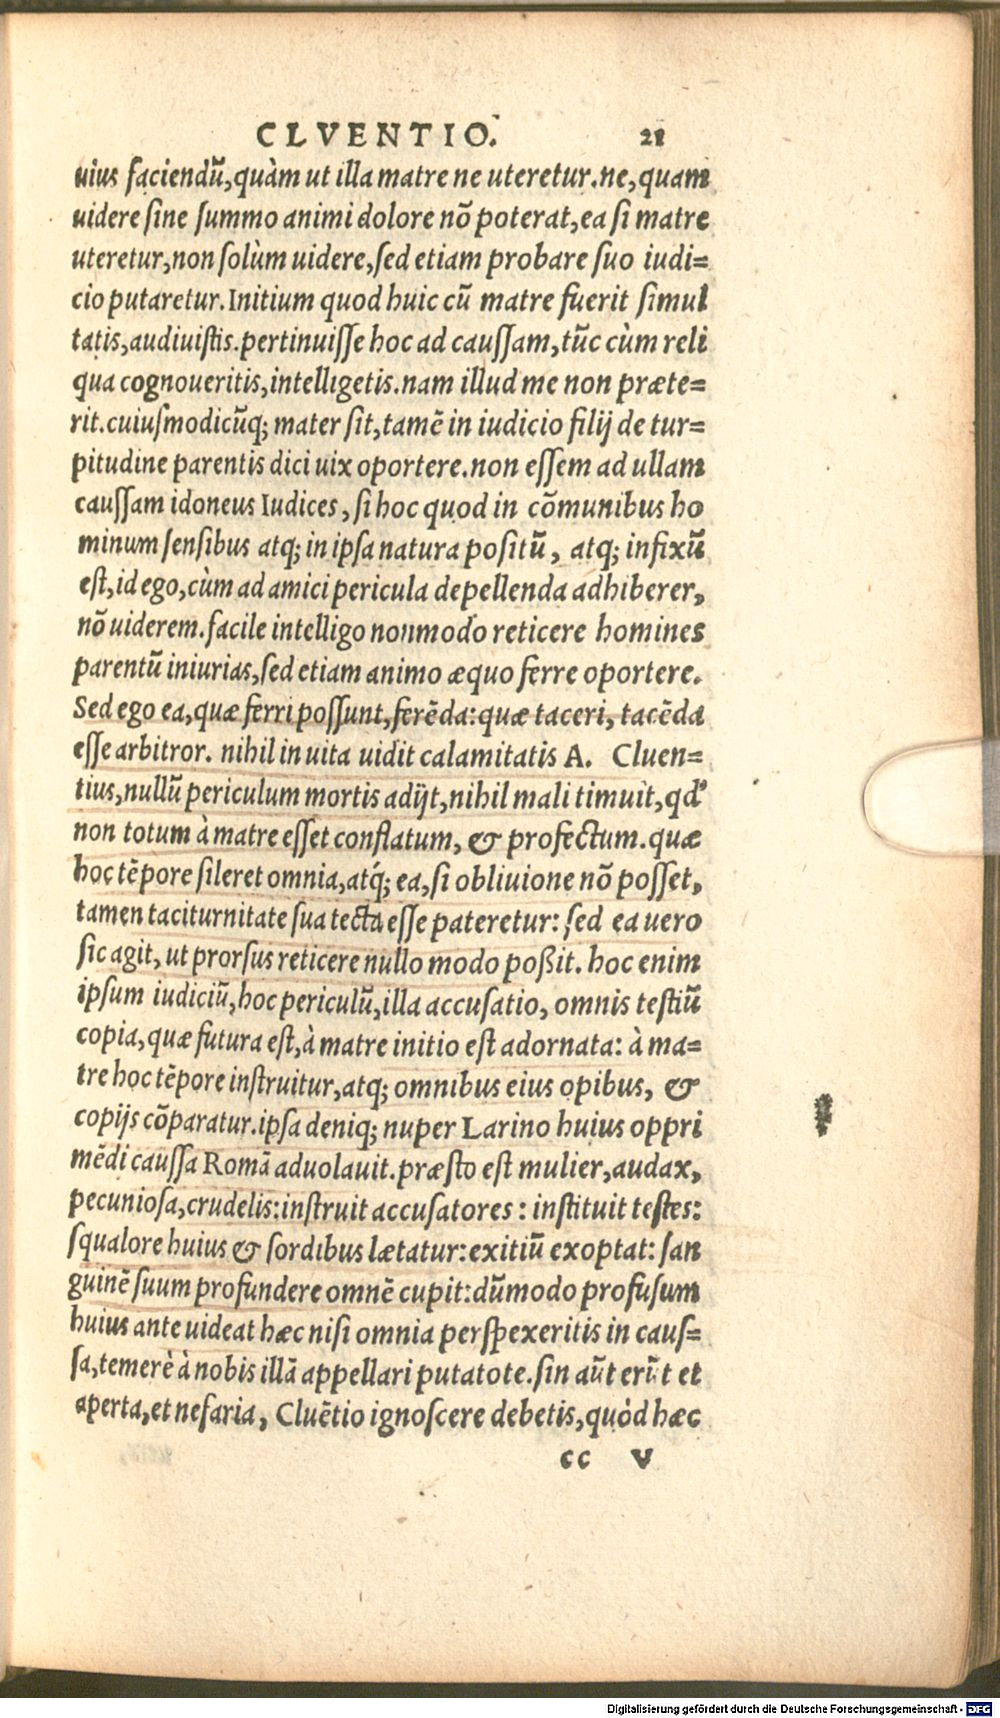 CLVENTIO. 21
uius faciendũ,quàm ut illa matre ne uteretur.ne,quam
uidere sine summo animi dolore nõ poterat,ea si matre
uteretur,non solùm uidere,sed etiam probare suo iudi=
cio putaretur.Initium quod huic cũ matre fuerit simul
tatis,audiuistis.pertinuisse hoc ad caussam,tũc cùm reli
qua cognoueritis,intelligetis.nam illud me non præte=
rit.cuiusmodicũq; mater sit,tamẽ in iudicio filij de tur=
pitudine parentis dici uix oportere.non essem ad ullam
caussam idoneus Iudices, si hoc quod in cõmunibus ho
minum sensibus atq; in ipsa natura positũ, atq; infixũ
est,id ego,cùm ad amici pericula depellenda adhiberer,
nõ uiderem.facile intelligo nonmodo reticere homines
parentũ iniurias,sed etiam animo æquo ferre oportere.
Sed ego ea,quæ ferri possunt,ferẽda:quæ taceri, tacẽda
esse arbitror. nihil in uita uidit calamitatis A. Cluen=
tius,nullũ periculum mortis adijt,nihil mali timuit,qd'
non totum à matre esset conflatum, & profectum.quæ
hoc tẽpore sileret omnia,atq́; ea,si obliuione nõ posset,
tamen taciturnitate sua tecta esse pateretur: sed ea uero
sic agit, ut prorsus reticere nullo modo poßit. hoc enim
ipsum iudiciũ,hoc periculũ,illa accusatio, omnis testiũ
copia,quæ futura est,à matre initio est adornata: à ma=
tre hoc tẽpore instruitur,atq; omnibus eius opibus, &
copijs cõparatur.ipsa deniq; nuper Larino huius oppri
mẽdi caussa Romã aduolauit.præsto est mulier,audax,
pecuniosa,crudelis:instruit accusatores : instituit testes:
squalore huius & sordibus lætatur:exitiũ exoptat: san
guinẽ suum profundere omnẽ cupit:dũmodo profusum
huius ante uideat hæc nisi omnia perspexeritis in caus=
sa,temerè à nobis illã appellari putatote.sin aũt erũt et
aperta,et nefaria, Cluẽtio ignoscere debetis,quòd hæc
cc v
Digitalisierung gefördert durch die Deutsche Forschungsgemeinschaft - DFG